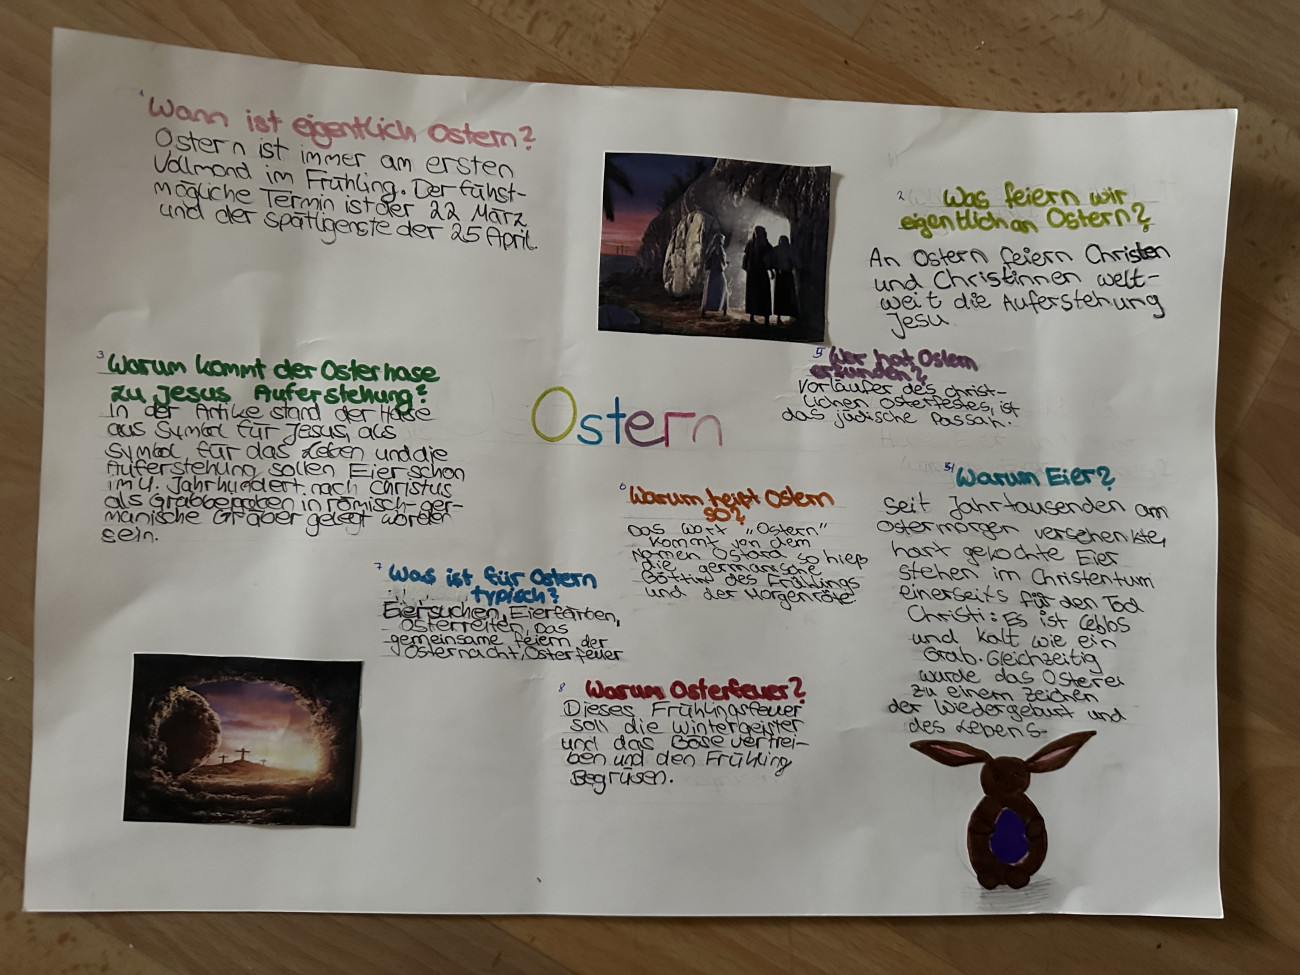 1
Wann ist eigentlich Ostern?
Ostern ist immer am ersten
Vollmond im Frühling. Der fühst-
mögliche Termin ist der 22 März
und der spätigenste der 25 April
2
Was feiern wir
eigentlich an Ostern?
An Ostern feiern Christen
und Christinnen welt-
weit die Auferstehung
Jesu
3
Warum kommt der Osterhase
zu Jesus Auferstehung?
In der Antike stand der Hase
aus Symbol für Jesus, als
Symbol für das Leben und die
Auferstehung sollen Eier schon
im 4. Jahrhundert nach Christus
als Grabbegaben in römisch-ger-
manische Gräber gelegt worden
sein.
Wer hat Ostern
erfunden?
Vorläufer des christ-
lichen Osterfestes, ist
das jüdische Passah.
Ostern
5
Warum Eier?
Seit Jahrtausenden am
Ostermorgen verschenkte,
hart gekochte Eier
stehen im Christentum
einerseits für den Tod
Christi: Es ist leblos
und kalt wie ein
Grab. Gleichzeitig
wurde das Osterei
zu einem Zeichen
der Wiedergeburt und
des Lebens.
6
Warum heißt Ostern
so?
Das Wort "Ostern"
kommt von dem
Namen Ostara so hieß
die germanische
Göttin des Frühlings
und der Morgenröte
7
Was ist für Ostern
typisch?
Eiersuchen, Eierfärben,
Osterreiten, Das
gemeinsame feiern der
Osternacht, Osterfeuer
8
Warum Osterfeuer?
Dieses Frühlingsfeuer
soll die Wintergeister
und das Böse vertrei-
ben und den Frühling
Begrüsen.